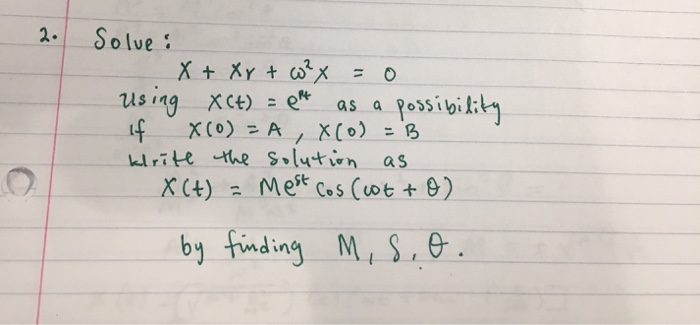 2. Solve:
X + Xr + ω²X = 0
using X(t) = e^{rt} as a possibility
if X(0) = A, X(0) = B
Write the solution as
X(t) = Me^{st} Cos(ωt + θ)
by finding M, S, θ.